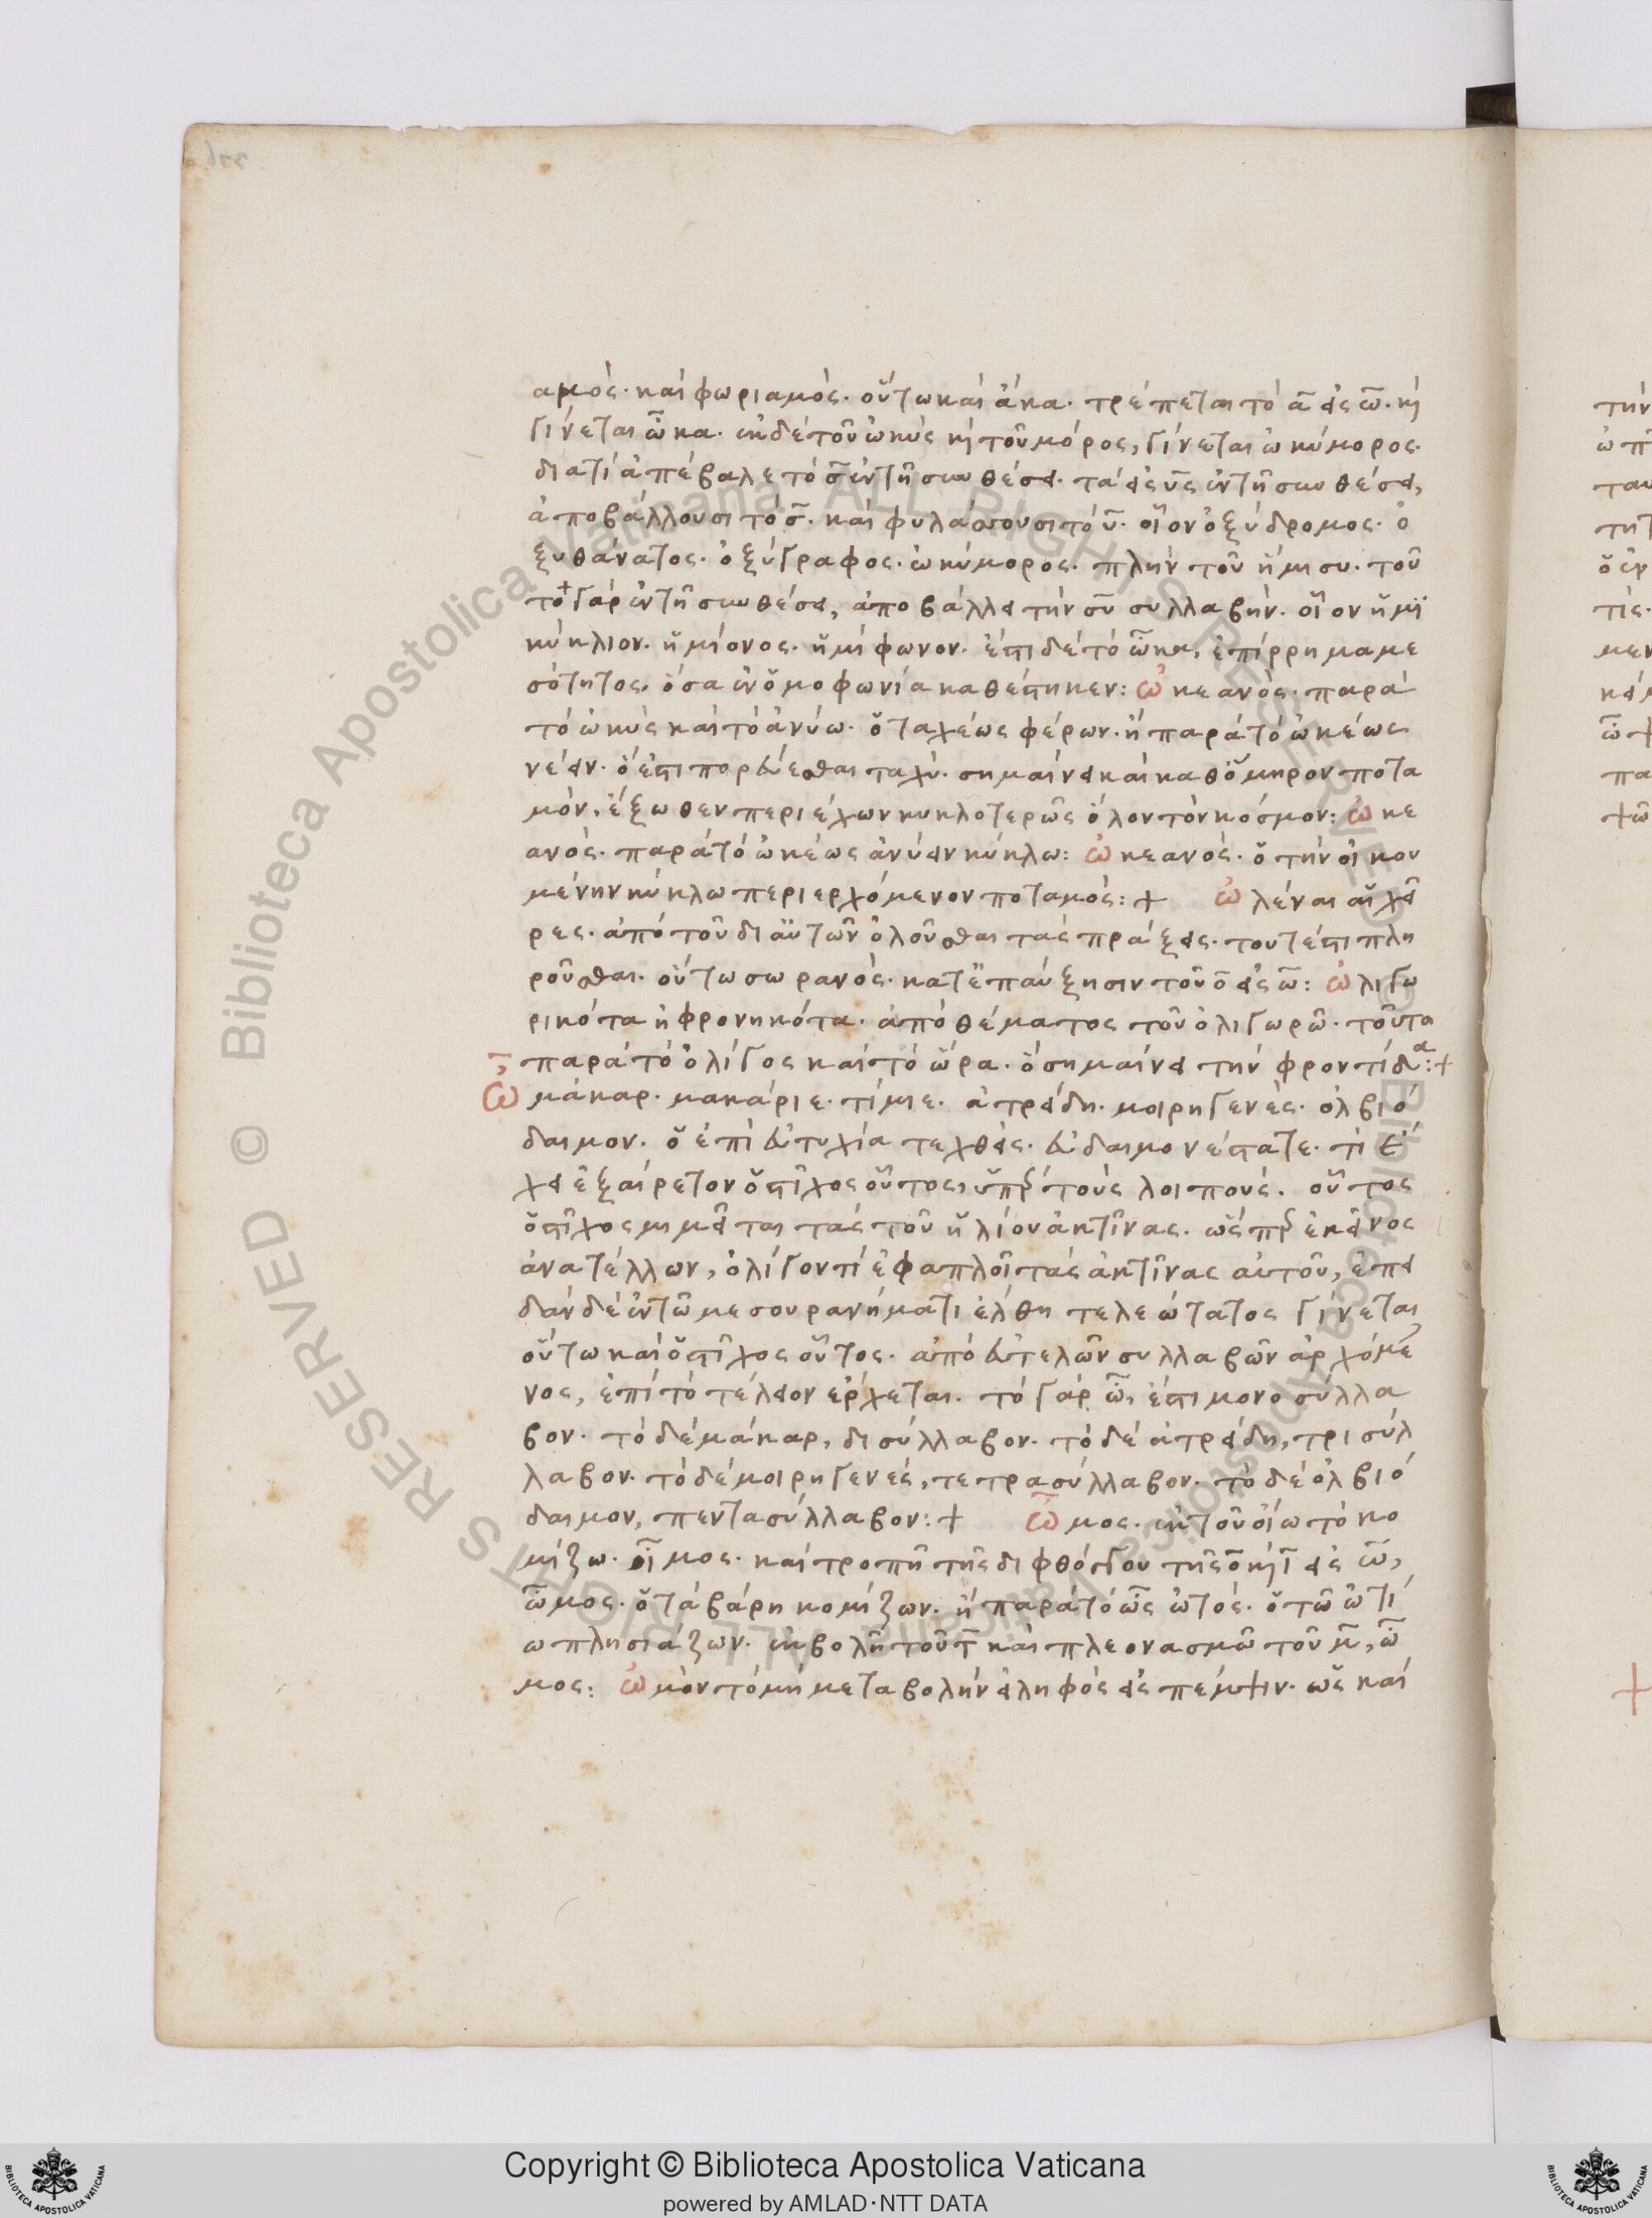 αμὸς· καὶ φωριαμὸς· οὕτω καὶ ἄκα· τρέπεται τὸ α̅ εἰς ω̅· κὶ
γίνεται ὦκα· ἐκ δὲ τοῦ ὠκὺς κὶ τοῦ μόρος, γίνεται ὠκύμορος·
διατί ἀπέβαλε τὸ σ̅ ἐν τῆ συνθέσει· τὰ εἰς υ̅ς ἐν τῆ συνθέσει,
ἀποβάλλουσι τὸ σ̅· καὶ φυλάσσουσι τὸ υ̅· οἷον ὀξύδρομος· ὀ
ξυθάνατος· ὀξύγραφος· ὠκύμορος· πλὴν τοῦ ἥμισυ· τοῦ
το γὰρ ἐν τῆ συνθέσει, ἀποβάλλει τὴν συ̅ συλλαβήν· οἷον ἡμϊ
κύκλιον· ἡμίονος· ἡμίφωνον· ἔστι δὲ τὸ ὦκα, ἐπίρρημα με
σότητος, ὅσα ἐν ὁμοφωνία καθέστηκεν: ὠκεανὸς· παρὰ
τὸ ὠκὺς καὶ τὸ ἀνύω· ὁ ταχέως φέρων· ἢ παρὰ τὸ ὠκέως
νέειν· ὅ ἐστι πορεύεσθαι ταχύ· σημαίνει καὶ καθ' ὅμηρον ποτα
μόν, ἔξωθεν περιέχων κυκλοτερῶς ὅλον τὸν κόσμον: ὠκε
ανὸς· παρὰ τὸ ὠκέως ἀνύειν κύκλω: ὠκεανὸς· ὁ τὴν οἰκου
μένην κύκλω περιερχόμενον ποταμὸς: + ὠλέναι αἱ χεῖ
ρες· ἀπὸ τοῦ δι αὐτῶν ὀλοῦσθαι τὰς πράξεις· τουτέστι πλη
ροῦσθαι· οὕτως ὠρανὸς· κατ' ἐπαύξησιν τοῦ ο̅ εἰς ω̅: ὠλιγω
ρικότα ἢ φρονηκότα· ἀπὸ θέματος τοῦ ὀλιγωρῶ· τοῦτο
παρὰ τὸ ὀλίγος καὶ τὸ ὥρα· ὃ σημαίνει τὴν φροντίδα:+
Ὦ μάκαρ· μακάριε· τίμιε· ἀτρείδη· μοιρηγενὲς· ὀλβιό
δαιμον· ὁ ἐπὶ εὐτυχία τεχθεὶς· εὐδαιμονέστατε· τί ἔ
χει ἐξαίρετον ὁ στίχος οὗτος, ὑπὲρ τοὺς λοιπούς· οὗτος
ὁ στίχος μιμεῖται τὰς τοῦ ἡλίου ἀκτῖνας· ὥσπερ ἐκεῖνος
ἀνατέλλων, ὀλίγον τί ἐφαπλοῖ τὰς ἀκτῖνας αὐτοῦ, ἐπει
δὰν δὲ ἐν τῶ μεσουρανήματι ἔλθη τελεώτατος γίνεται
οὕτω καὶ ὁ στίχος οὗτος· ἀπὸ εὐτελῶν συλλαβῶν ἀρχόμε
νος, ἐπὶ τὸ τέλειον ἔρχεται· τὸ γὰρ ὦ, ἐστι μονοσύλλα
βον· τὸ δὲ μάκαρ, δισύλλαβον· τὸ δὲ ἀτρείδη, τρισύλ
λαβον· τὸ δὲ μοιρηγενές, τετρασύλλαβον· τὸ δὲ ὀλβιό
δαιμον, πεντασύλλαβον: + ὦμος· ἐκ τοῦ οἴω τὸ κο
μίζω· οἶμος· καὶ τροπῆ τῆς διφθόγγου τῆς ο̅ κὶ ι̅ εἰς ω̅,
ὦμος· ὁ τὰ βάρη κομίζων· ἢ παρὰ τὸ ὦς ὠτός· ὁ τῶ ὠτί
ω πλησιάζων· ἐκβολῆ τοῦ τ̅ καὶ πλεονασμῶ τοῦ μ̅, ὦ
μος: ὠμὸν τὸ μὴ μεταβολὴν εἰληφὸς εἰς πέμψιν· ὡς καὶ
Copyright © Biblioteca Apostolica Vaticana
powered by AMLAD·NTT DATA